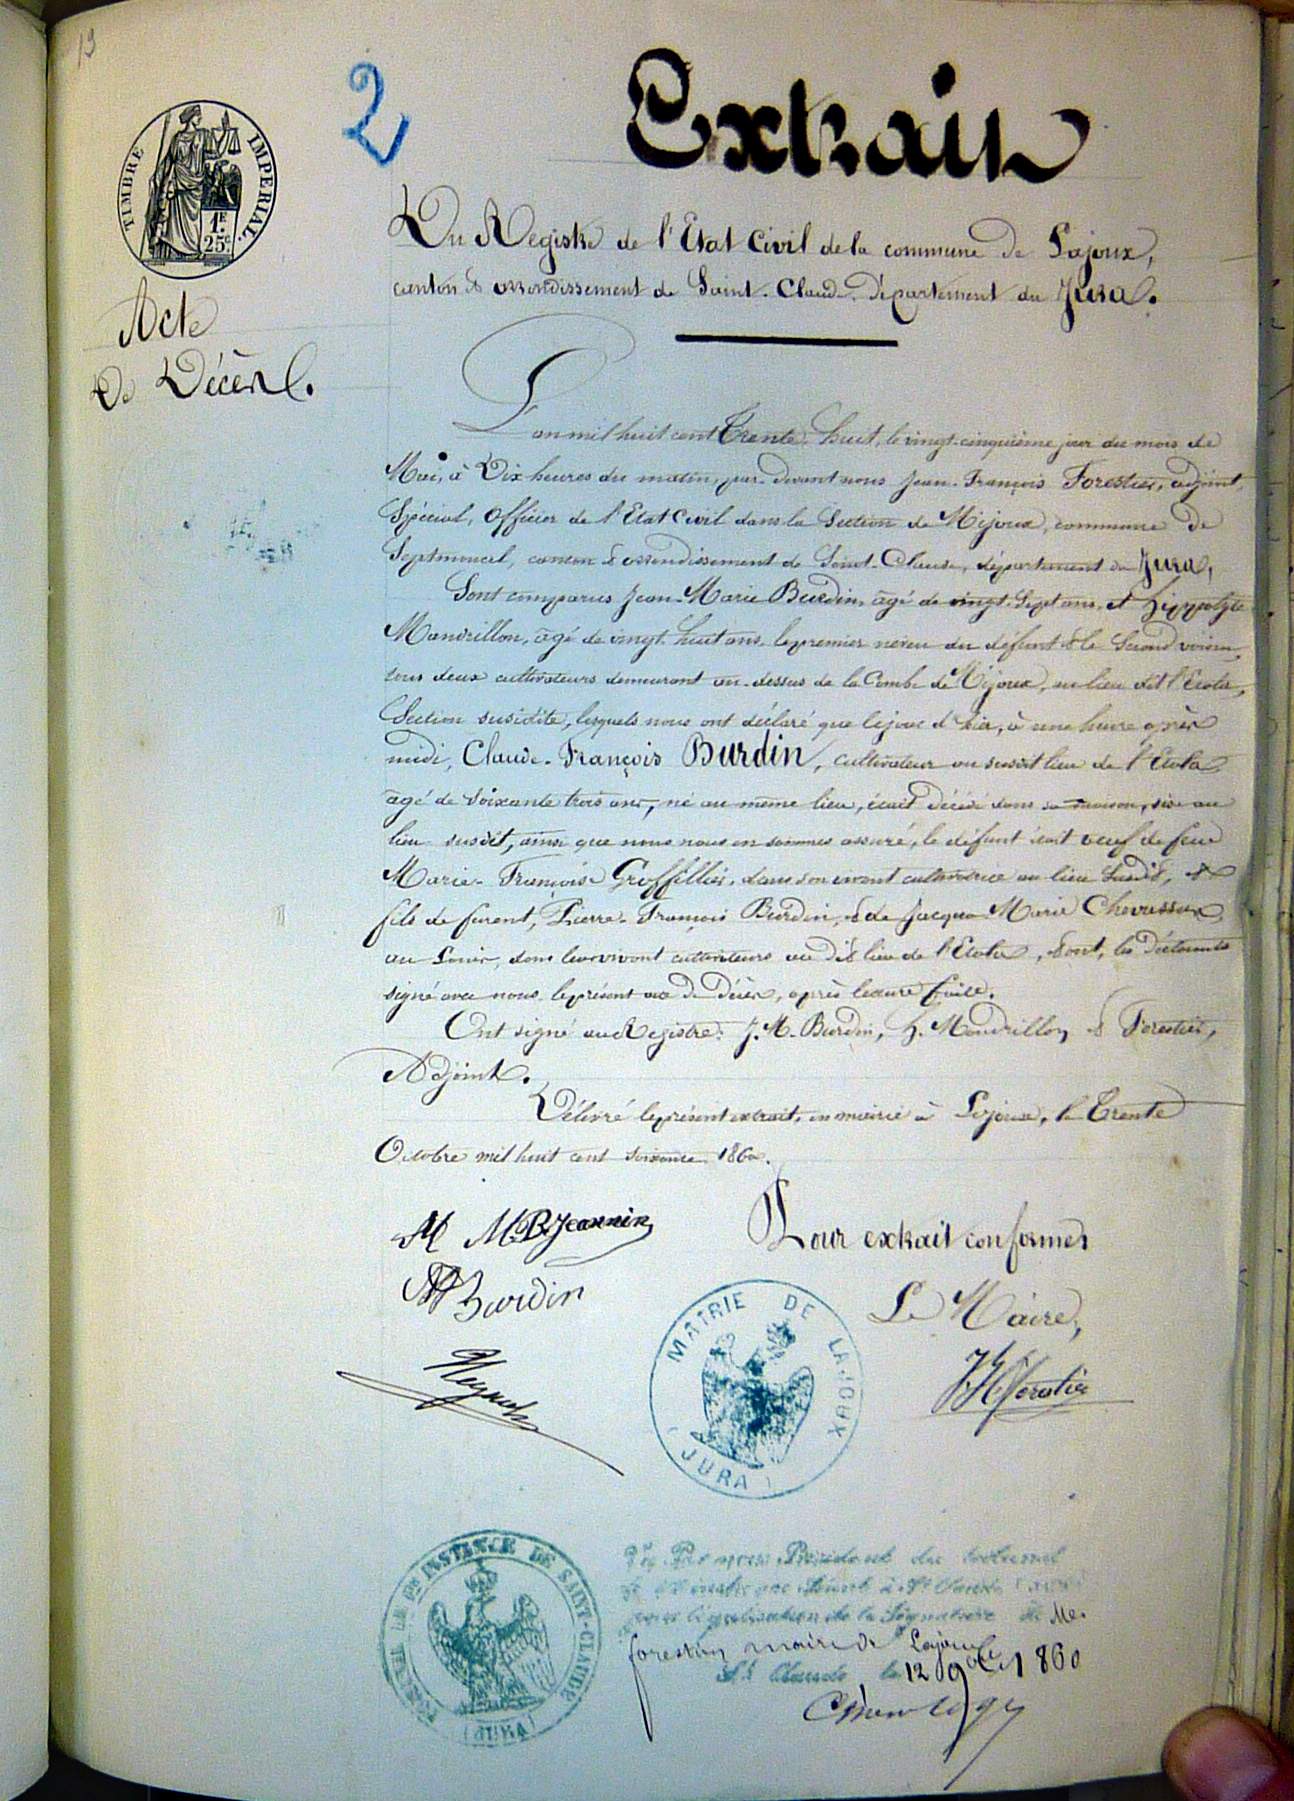 19
2
TIMBRE IMPERIAL.
1F
25c
Extrait
Du Registre de l'Etat Civil de la commune de Lajoux,
canton & arrondissement de Saint-Claude, Département du Jura.
Acte
De Décès.
L'an mil huit cent Trente-huit, le vingt-cinquième jour du mois de
Mai, à Dix heures du matin, par-devant nous Jean-François Forestier, adjoint,
Spécial, Officier de l'Etat Civil dans la Section de Mijoux, commune de
Septmoncel, canton & arrondissement de Saint-Claude, département du Jura,
Sont comparus Jean-Marie Burdin, âgé de vingt-sept ans, et hippolyte
Mandrillon, âgé de vingt-huit ans, le premier neveu du défunt & le Second voisin,
tous deux cultivateurs demeurant au-dessus de la Combe de Mijoux, au lieu dit l'Etola,
Section susdite, lesquels nous ont déclaré que le jour d'hier, à une heure après
midi, Claude-François Burdin, cultivateur au susdit lieu de l'Etola,
âgé de soixante trois ans, né au même lieu, était décédé dans sa maison, sise au
lieu susdit, ainsi que nous nous en sommes assuré, le défunt était veuf de feue
Marie-Françoise Groffillier, dans son vivant cultivatrice au lieu susdit, &
fils de furent, Pierre-François Burdin, & de Jacqua-Marie Chevassux
au Louis, dans leur vivant cultivateurs au dit lieu de l'Etola, & ont, les Déclarants
signé avec nous le présent acte de Décès, après lecture faite.
Ont signé au Registre: J. M. Burdin, h. Mandrillon & Forestier,
Adjoint.
Délivré le présent extrait, en mairie à Lajoux, le Trente
Octobre mil huit cent soixante 1860.
M M.B. Jeannin
Burdin
Pour extrait conforme
Le Maire,
Forestier
MAIRIE DE LAJOUX
(JURA)
TRIBUNAL DE 1re INSTANCE DE SAINT-CLAUDE
(JURA)
Vu Par nous Président du tribunal
de 1re instance séant à St Claude
pour légalisation de la Signature de Me.
forestier maire de Lajoux
St Claude le 12 9bre 1860